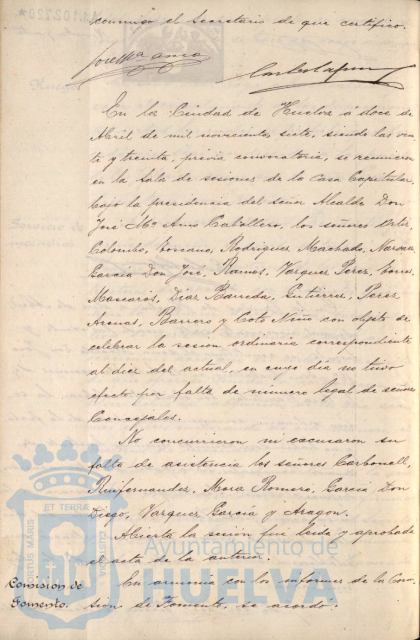 conmigo el Secretario de que certifico.
José Mª Amo
En la Ciudad de Huelva á doce de
Abril de mil novecientos siete, siendo las vein
te y treinta, previa convocatoria, se reunieron
en la Sala de sesiones de la Casa Capitular,
bajo la presidencia del señor Alcalde Don
José Mª Amo Caballero, los señores Ortiz,
Colombo, Toscano, Rodriguez Machado,
Garcia Don José, Ramos, Vazquez Perez,
Mascarós, Diaz Barreda, Gutierrez, Perez
Arenas, Barrero y Coto Niño con objeto de
celebrar la sesion ordinaria correspondiente
al diez del actual, en cuyo dia no tuvo
efecto por falta de número legal de señores
Concejales.
No concurrieron ni excusaron su
falta de asistencia los señores Carbonell,
Ruifernandez, Mora Romero, Garcia Don
Diego, Vazquez Garcia y Aragon.
Abierta la sesion fue leida y aprobada
el acta de la anterior.
Comision de
Fomento.
En armonia con los informes de la Comi
sión de Fomento, se acordó:
ET TERRÆ
PORTUS MARIS
CUSTODIA
Ayuntamiento de
HUELVA